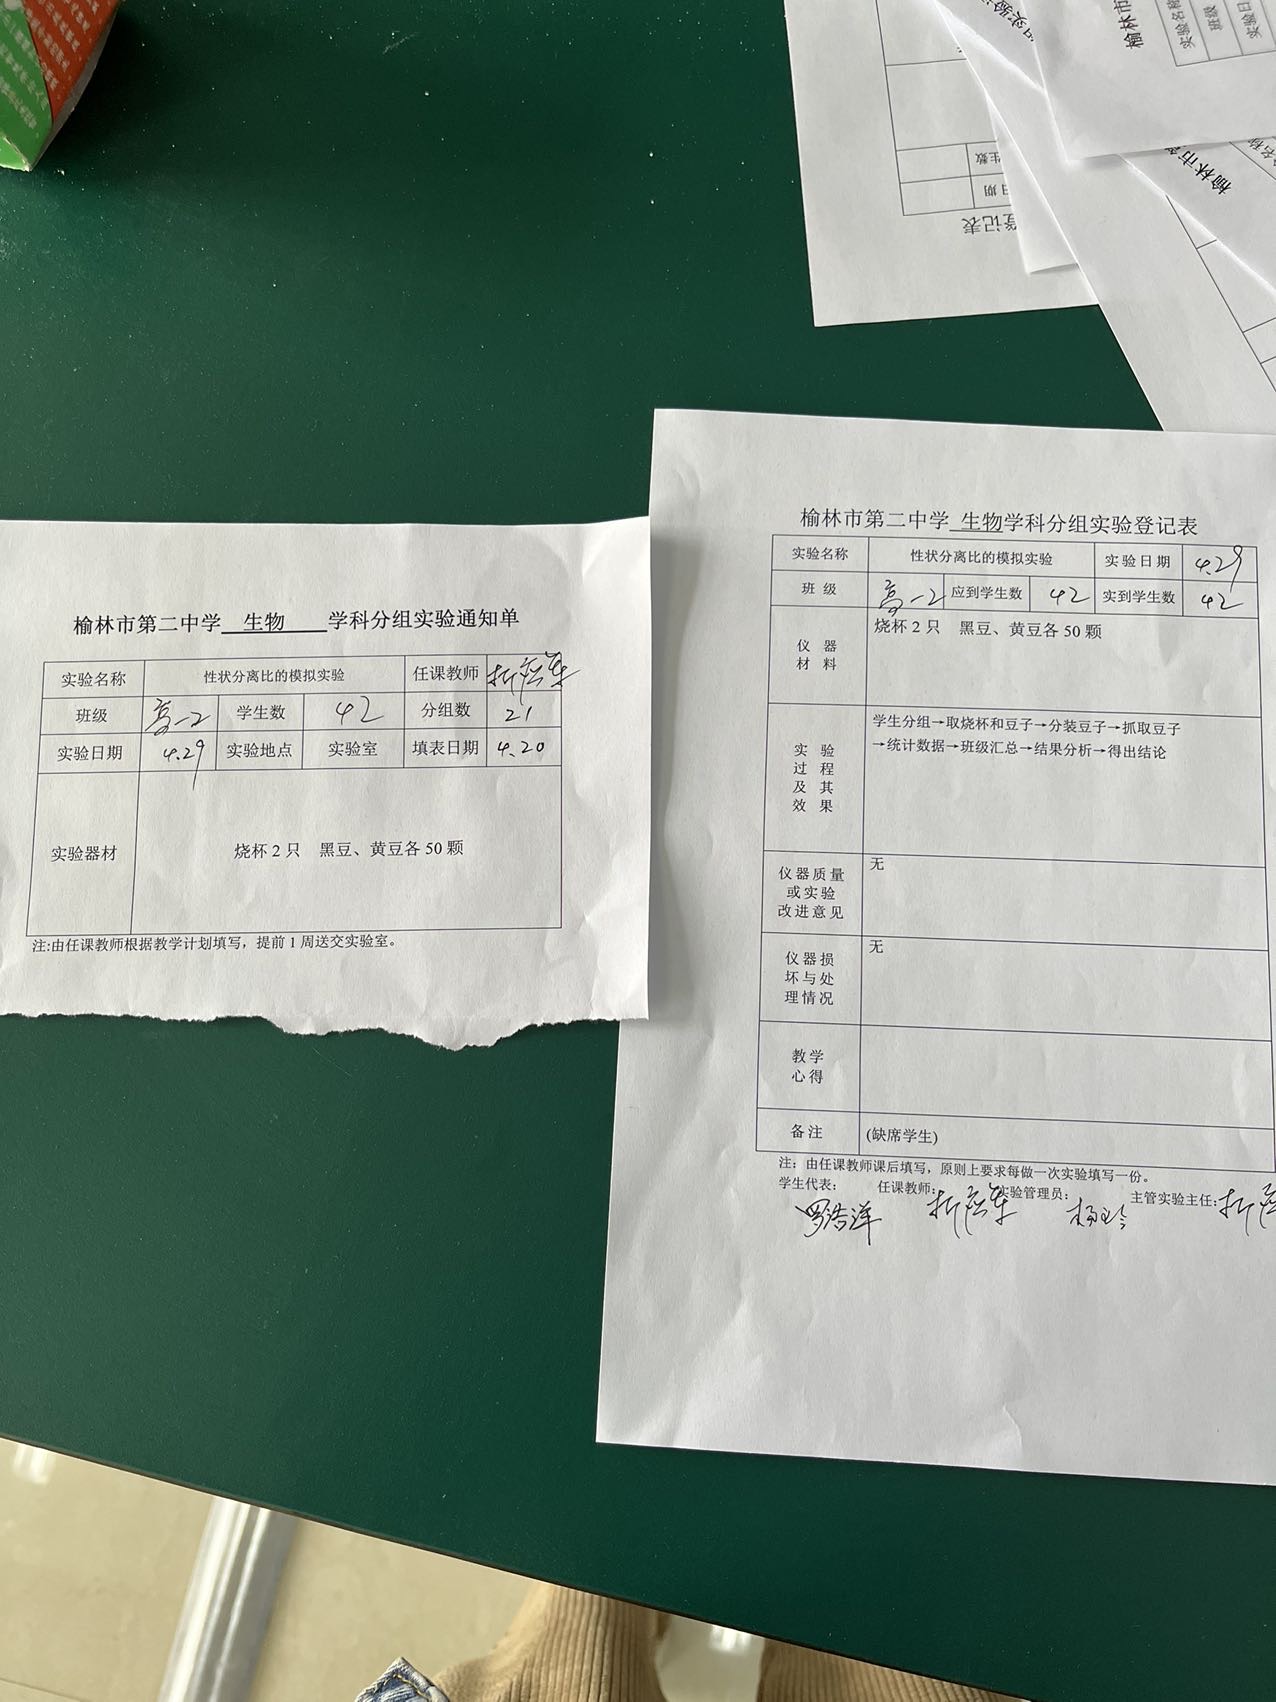 榆林市第二中学 生物 学科分组实验通知单
实验名称 性状分离比的模拟实验 任课教师
班级 高一2 学生数 42 分组数 21
实验日期 4.29 实验地点 实验室 填表日期 4.20
实验器材 烧杯 2 只 黑豆、黄豆各 50 颗
注:由任课教师根据教学计划填写，提前 1 周送交实验室。
榆林市第二中学 生物学科分组实验登记表
实验名称 性状分离比的模拟实验 实验日期 4.29
班级 高一2 应到学生数 42 实到学生数 42
仪器
材料
烧杯 2 只 黑豆、黄豆各 50 颗
实验
过程
及其
效果
学生分组→取烧杯和豆子→分装豆子→抓取豆子
→统计数据→班级汇总→结果分析→得出结论
仪器质量
或实验
改进意见
无
仪器损
坏与处
理情况
无
教学
心得
备注 (缺席学生)
注：由任课教师课后填写，原则上要求每做一次实验填写一份。
学生代表： 任课教师： 实验管理员： 主管实验主任：
罗浩洋 杨玲
登记表
榆林市
实验名称
班级
实验日
榆林市第